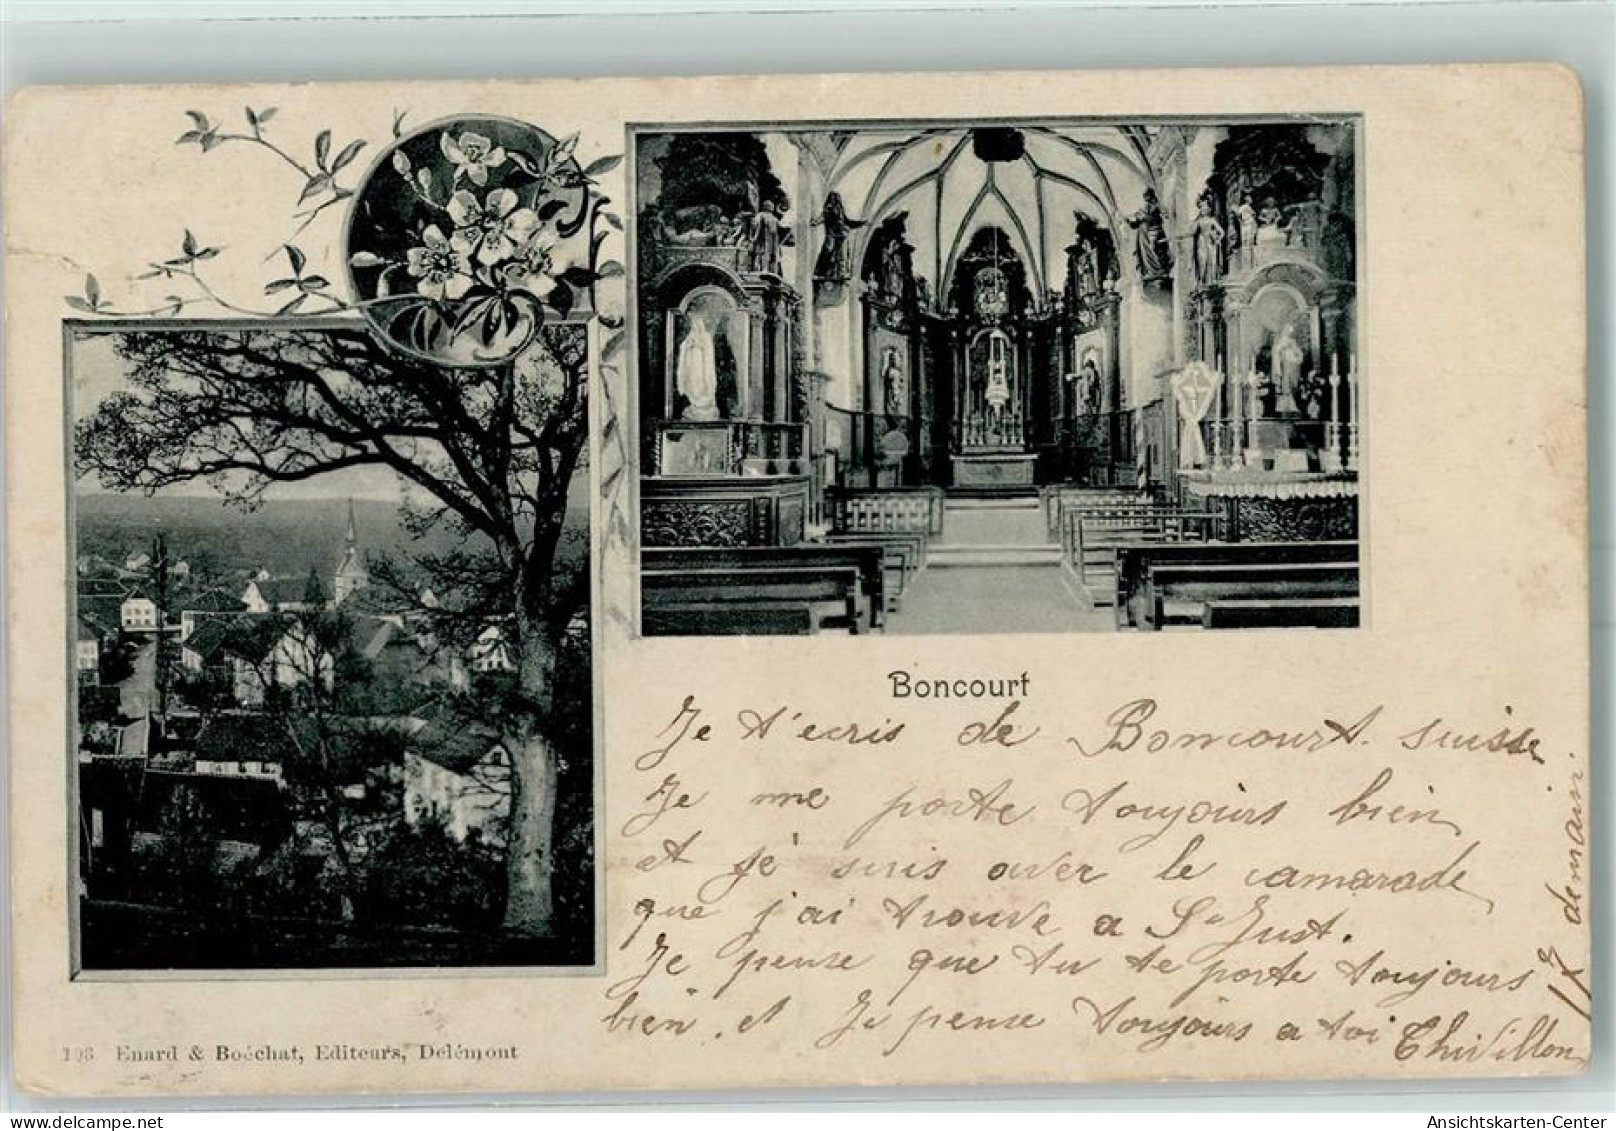 Boncourt
Je t'ecris de Boncourt. suisse
Je me porte toujoirs bien
et jé suis aver le camarade
que j'ai trouve a St Just.
Je pense que tu te porte toujours
bien. et Je pense toujours a toi
demain
196 Enard & Boéchat, Editeurs, Delémont
Ansichtskarten-Center